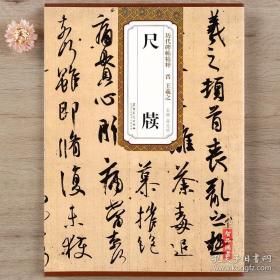 历代碑帖精粹 晋 王羲之
尺牍
羲之頓首喪亂之極
離荼毒追
慕摧絕
痛貫心肝痛當奈
何雖即脩復未獲